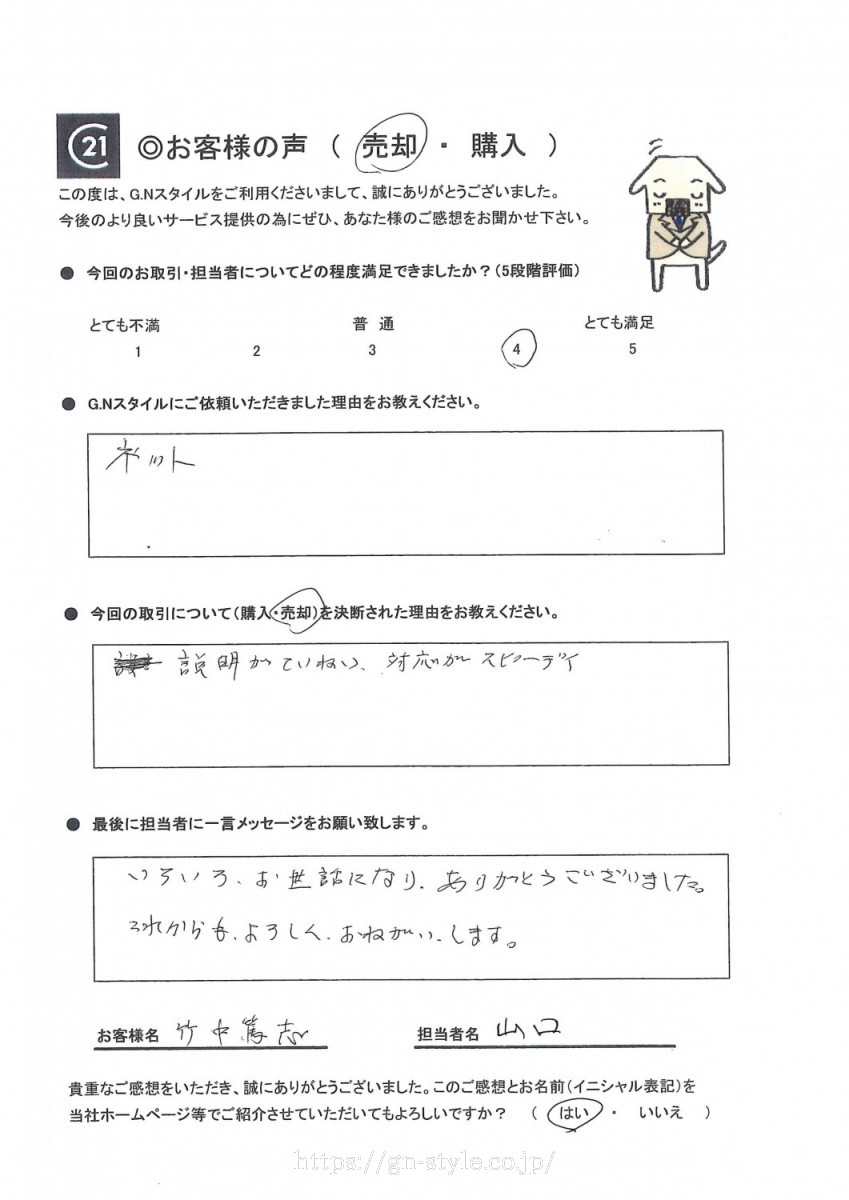 C21 ◎お客様の声 ( 売却 ・ 購入 )
この度は、G.Nスタイルをご利用くださいまして、誠にありがとうございました。
今後のより良いサービス提供の為にぜひ、あなた様のご感想をお聞かせ下さい。
● 今回のお取引・担当者についてどの程度満足できましたか？(5段階評価)
とても不満 普 通 とても満足
1 2 3 4 5
● G.Nスタイルにご依頼いただきました理由をお教えください。
ネット
● 今回の取引について(購入・売却)を決断された理由をお教えください。
説明がていねい、対応がスピーディ
● 最後に担当者に一言メッセージをお願い致します。
いろいろ、お世話になり、ありがとうございました。
これからも、よろしく、おねがい、します。
お客様名 竹中篤志 担当者名 山口
貴重なご感想をいただき、誠にありがとうございました。このご感想とお名前(イニシャル表記)を
当社ホームページ等でご紹介させていただいてもよろしいですか？ ( はい ・ いいえ )
https://gn-style.co.jp/